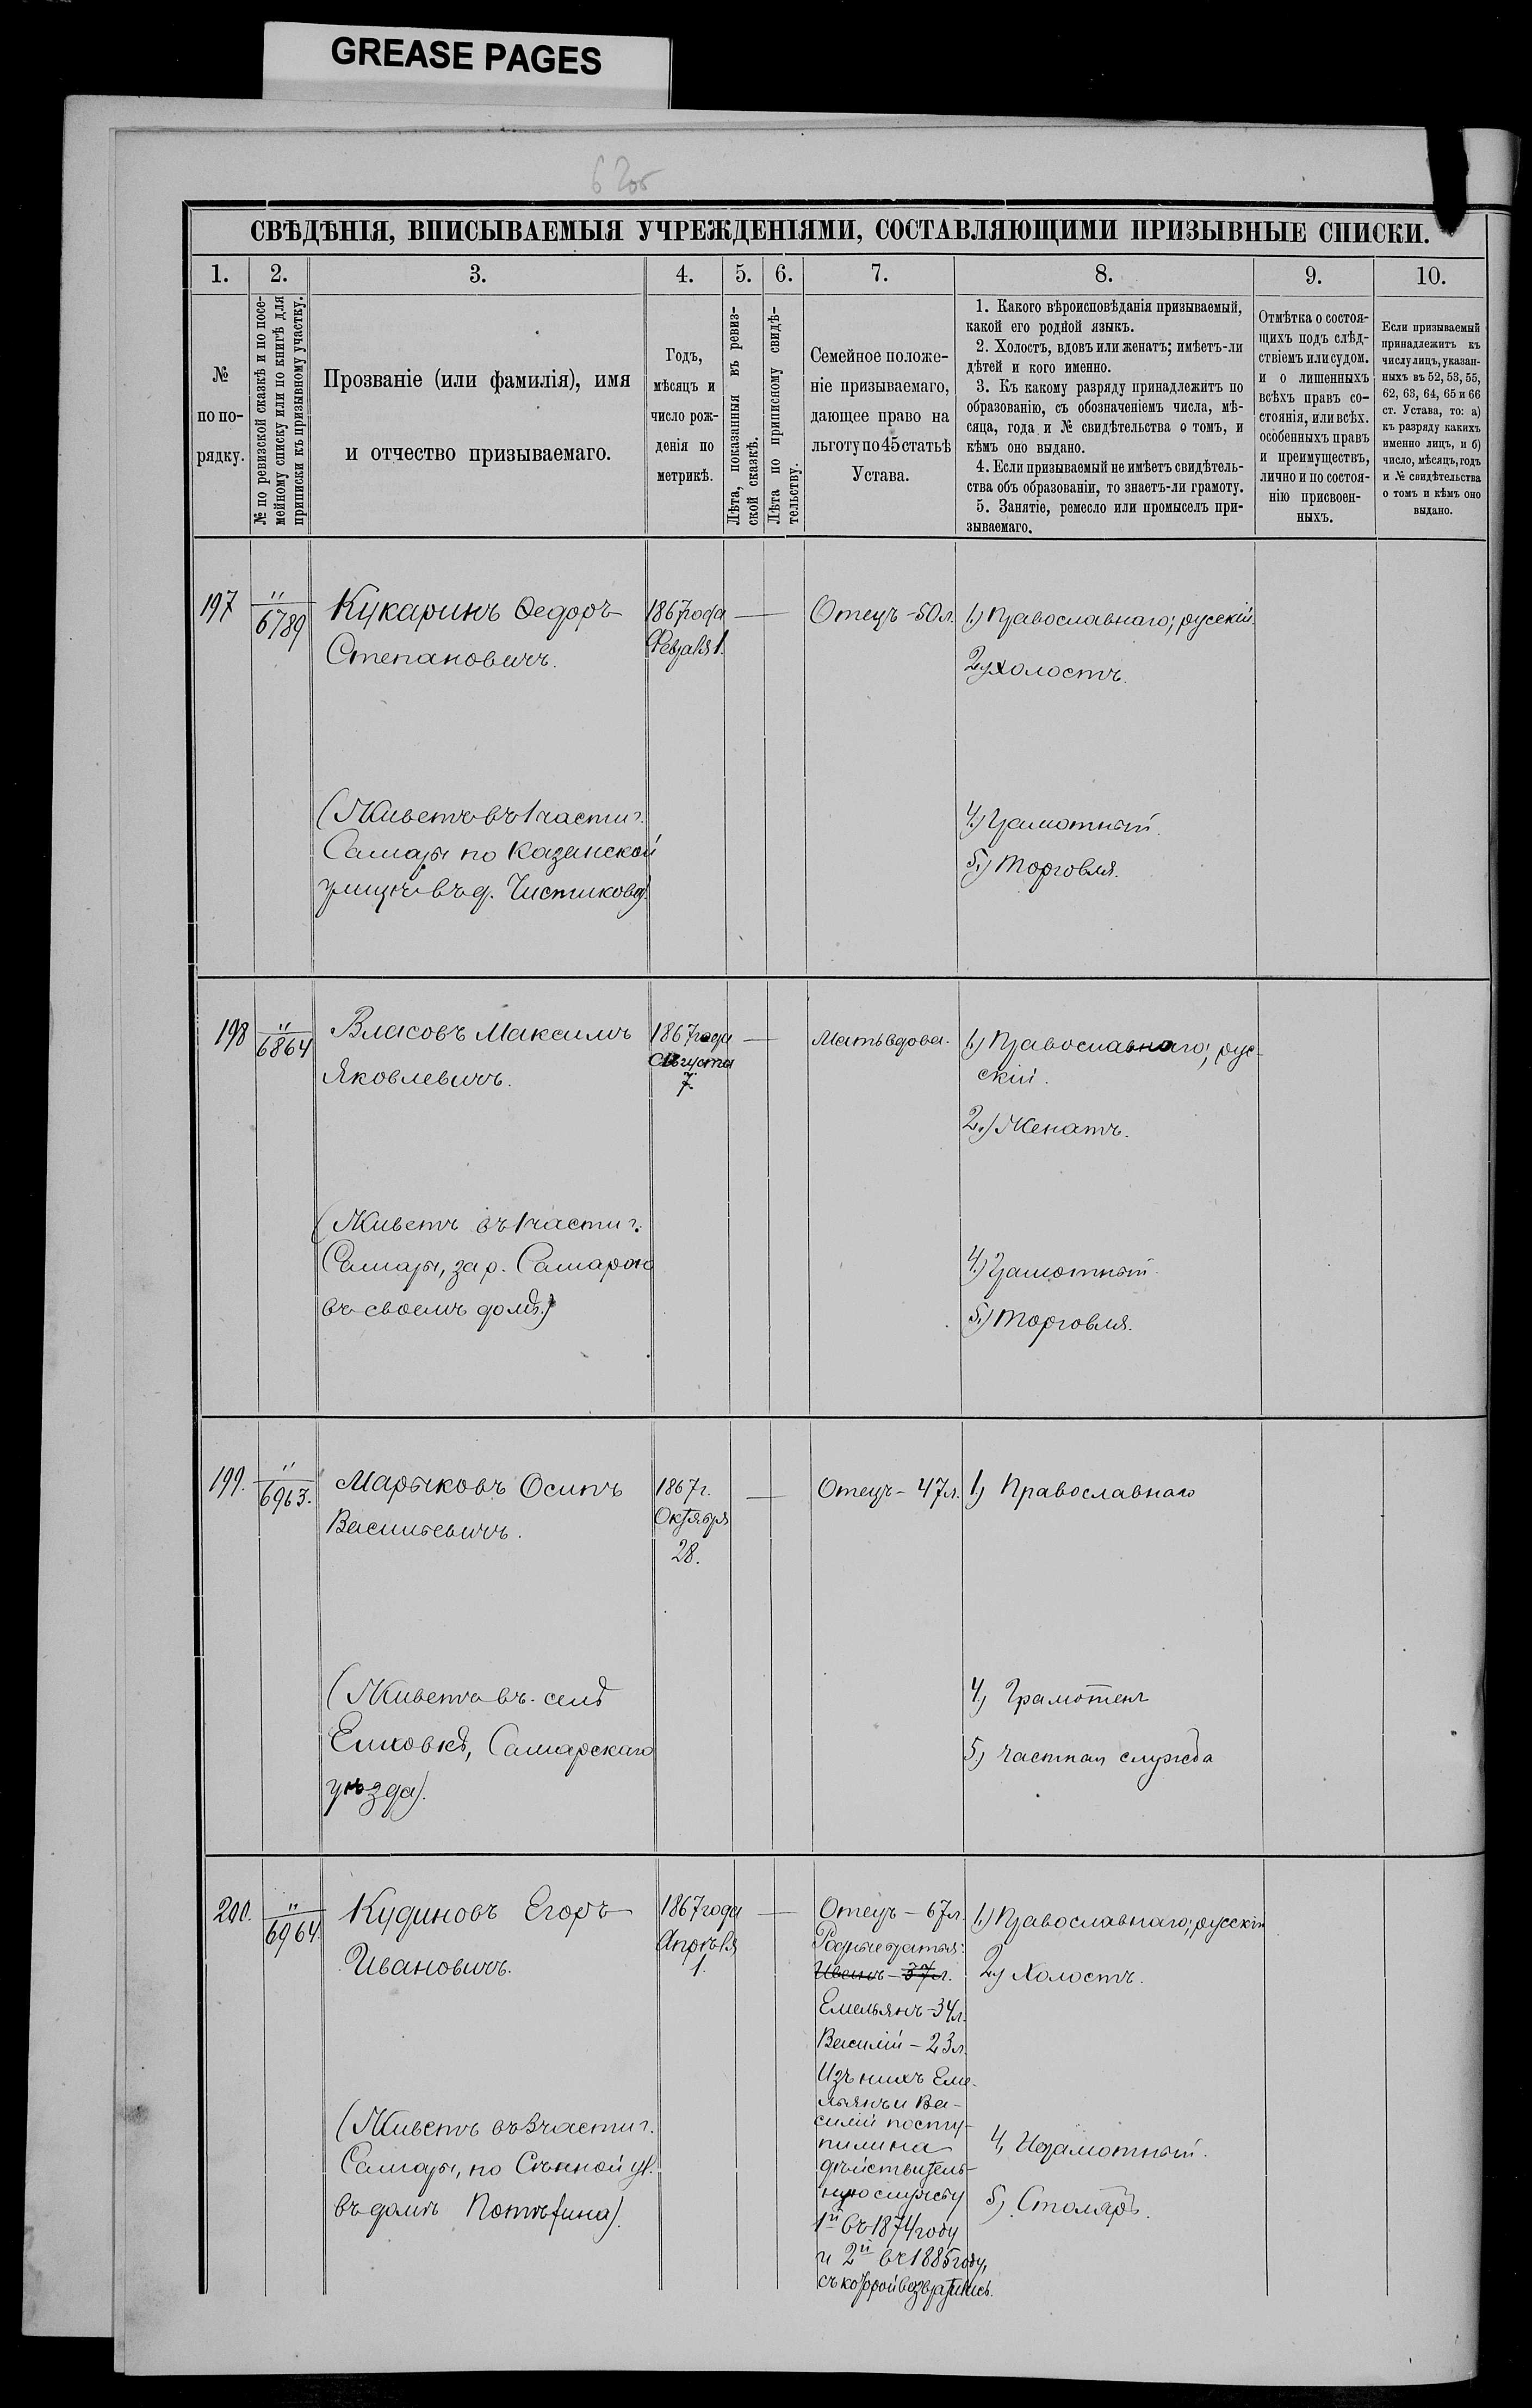 GREASE PAGES
62об
СВѢДѢНІЯ, ВПИСЫВАЕМЫЯ УЧРЕЖДЕНІЯМИ, СОСТАВЛЯЮЩИМИ ПРИЗЫВНЫЕ СПИСКИ.
1. 2. 3. 4. 5. 6. 7. 8. 9. 10.
№
по по-
рядку.
№ по ревизской сказкѣ и по посе-
мейному списку или по книгѣ для
приписки къ призывному участку.
Прозваніе (или фамилія), имя
и отчество призываемаго.
Годъ,
мѣсяцъ и
число рож-
денія по
метрикѣ.
Лѣта, показанныя въ ревиз-
ской сказкѣ.
Лѣта по приписному свидѣ-
тельству.
Семейное положе-
ніе призываемаго,
дающее право на
льготу по 45 статьѣ
Устава.
1. Какого вѣроисповѣданія призываемый,
какой его родной языкъ.
2. Холостъ, вдовъ или женатъ; имѣетъ-ли
дѣтей и кого именно.
3. Къ какому разряду принадлежитъ по
образованію, съ обозначеніемъ числа, мѣ-
сяца, года и № свидѣтельства о томъ, и
кѣмъ оно выдано.
4. Если призываемый не имѣетъ свидѣтель-
ства объ образованіи, то знаетъ-ли грамоту.
5. Занятіе, ремесло или промыселъ при-
зываемаго.
Отмѣтка о состоя-
щихъ подъ слѣд-
ствіемъ или судом.
и о лишенныхъ
всѣхъ правъ со-
стоянія, или всѣх.
особенныхъ правъ
и преимуществъ,
лично и по состоя-
нію присвоен-
ныхъ.
Если призываемый
принадлежитъ къ
числу лицъ, указан-
ныхъ въ 52, 53, 55,
62, 63, 64, 65 и 66
ст. Устава, то: а)
къ разряду какихъ
именно лицъ, и б)
число, мѣсяцъ, годъ
и № свидѣтельства
о томъ и кѣмъ оно
выдано.
197
"
6789
Кукаринъ Ѳедоръ
Степановичъ.
(Живетъ въ 1 части г.
Самары по Казанской
улицѣ въ д. Чистикова).
1867 года
Февраля 1.
—
Отецъ - 50 л.
1.) Православнаго; русскій
2.) Холостъ.
4.) Грамотный.
5.) Торговля.
198
"
6864
Власовъ Максимъ
Яковлевичъ.
(Живетъ въ 1 части г.
Самары, за р. Самарою
въ своемъ домѣ.)
1867 года
Августа
7.
—
Мать вдова.
1.) Православнаго; рус-
скій.
2.) Женатъ.
4.) Грамотный.
5.) Торговля.
199.
"
6963.
Марыковъ Осипъ
Васильевичъ.
(Живетъ въ селѣ
Елховкѣ, Самарскаго
уѣзда).
1867 г.
Октября
28.
—
Отецъ - 47 л.
1, Православнаго
4, Грамотенъ
5.) частная служба
200.
"
6964.
Кудиновъ Егоръ
Ивановичъ.
(Живетъ въ 3 части г.
Самары, по Сѣнной ул.
въ домѣ Потѣхина).
1867 года
Апрѣля
1.
—
Отецъ - 67 л.
Родные братья:
Иванъ - 37 л.
Емельянъ - 34 л.
Василій - 23 л.
Изъ нихъ Еме-
льянъ и Ва-
силій посту-
пили на
дѣйствитель-
ную службу
1й въ 1874 году
и 2й въ 1885 году,
съ которой возвратились.
1.) Православнаго; русскій
2, Холостъ.
4, Неграмотный.
5, Столяръ.